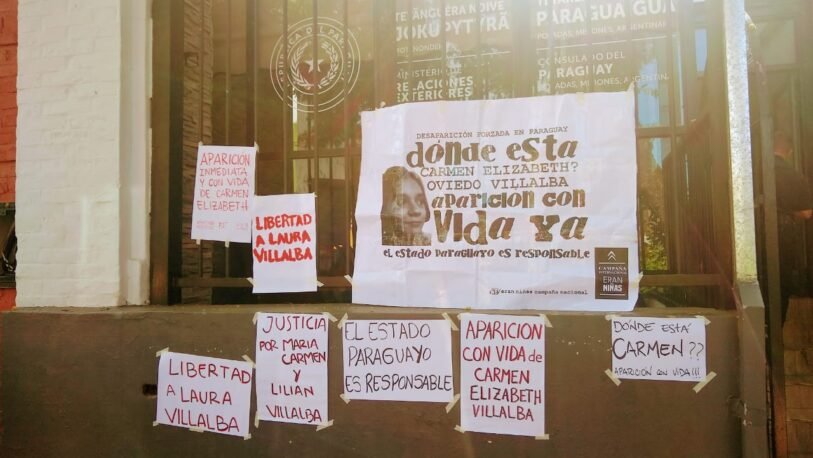 REPUBLICA DEL PAR
TETANGUÉRA NDIVE
JOKUPYTYRÃ
MINISTERIO DE
RELACIONES
EXTERIORES
PARAGUAY GUA
POSADAS, MISIONES, ARGENTINA
CONSULADO DEL
PARAGUAY
POSADAS, MISIONES, ARGENTINA
APARICION
INMEDIATA
Y CON VIDA
DE CARMEN
ELIZABETH
LIBERTAD
A LAURA
VILLALBA
DESAPARICIÓN FORZADA EN PARAGUAY
dónde esta
CARMEN ELIZABETH?
OVIEDO VILLALBA
aparicion con
vida ya
el estado paraguayo es responsable
eran niñas campaña nacional
CAMPAÑA
INTERNACIONAL
ERAN
NIÑAS
LIBERTAD
A LAURA
VILLALBA
JUSTICIA
POR MARIA
CARMEN
Y
LILIAN
VILLALBA
EL ESTADO
PARAGUAYO
ES RESPONSABLE
APARICION
CON VIDA de
CARMEN
ELIZABETH
VILLALBA
DONDE ESTÁ
CARMEN??
APARICIÓN CON VIDA!!!